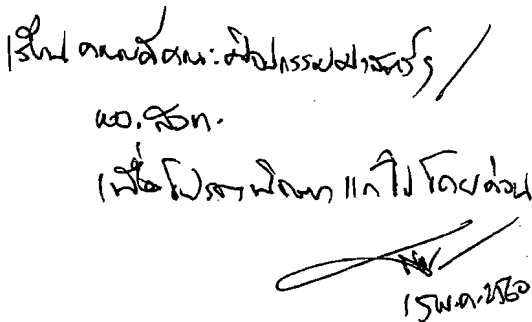 เรียน คณบดีคณะศิลปกรรมศาสตร์ /
ผอ. สวท.
เพื่อโปรดพิจารณาแก้ไขโดยด่วน
15 พ.ค. 2560